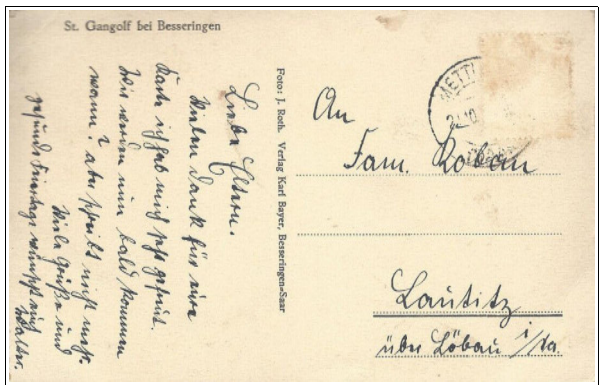 St. Gangolf bei Besseringen
Liebe Eltern.
Vielen Dank für eure
Karte ich hab mich sehr gefreut.
Wir werden nun bald kommen
wann? aber schreibt nicht mehr.
Viele Grüße und
gesunde Feiertage wünscht euch
Walter.
Foto: J. Roth. Verlag Karl Bayer, Besseringen-Saar
METTL
An
Fam. Koban
Lautitz
über Löbau i/Sa.